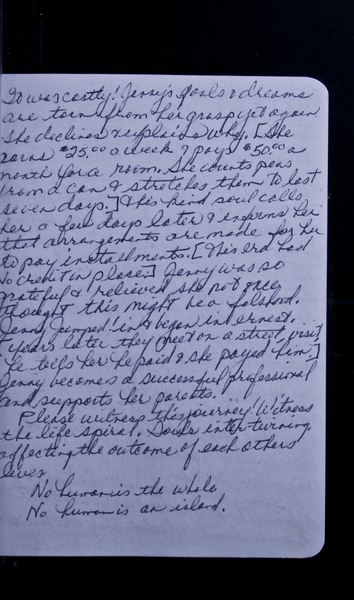 It was costly! Jenny's goals & dreams
are torn from her grasp yet again.
She declines & explains why. [She
earns $25.00 a week & pays $50.00 a
month for a room. She counts peas
from a can & stretches them to last
seven days.] This kind soul calls
her a few days later & informs her
that arrangements are made for her
to pay installments. [This era had
no credit in place.] Jenny was so
grateful & relieved she not once
thought this might be a falsehood.
Jenny jumped in & began in earnest.
[Years later they meet on a street, visit,
he tells her he paid & she payed him.]
Jenny becomes a successful professional
and supports her parents.
Please witness this journey! Witness
the life spiral. Souls intertwining,
affecting the outcome of each others
lives.
No human is the whole
No human is an island.